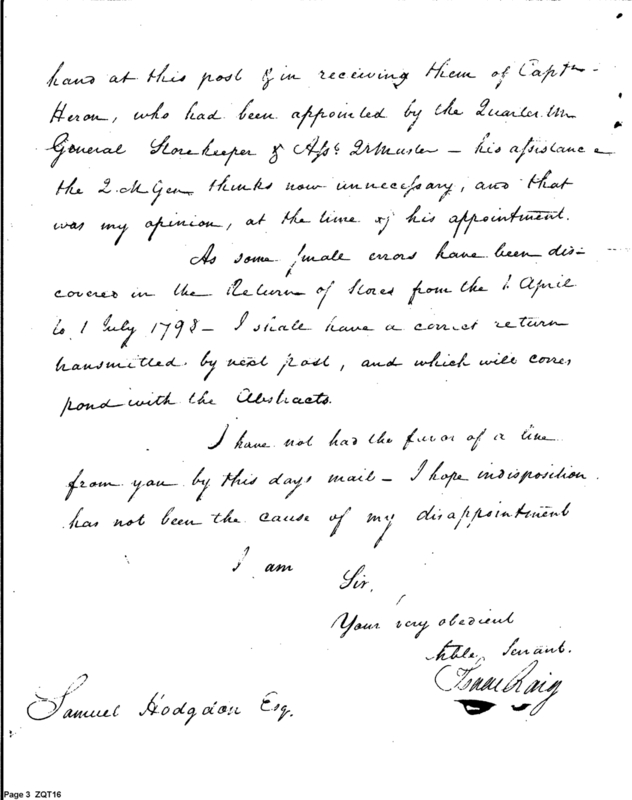 hand at this post & in receiving them of Captn
Heron, who had been appointed by the Quarter M
General Storekeeper & Asst. QrMaster – his assistance
the Q. M Gen. thinks now unnecessary, and that
was my opinion, at the time of his appointment.
As some small errors have been dis-
covered in the Return of Stores from the 1. April
to 1 July 1798 – I shall have a correct return
transmitted by next post, and which will corres
pond with the Abstracts.
I have not had the favor of a line
from you by this days mail – I hope indisposition
has not been the cause of my disappointment
I am
Sir,
Your very obedient
Hble, Servant.
Isaac Craig
Samuel Hodgdon Esq.
Page 3 ZQT16